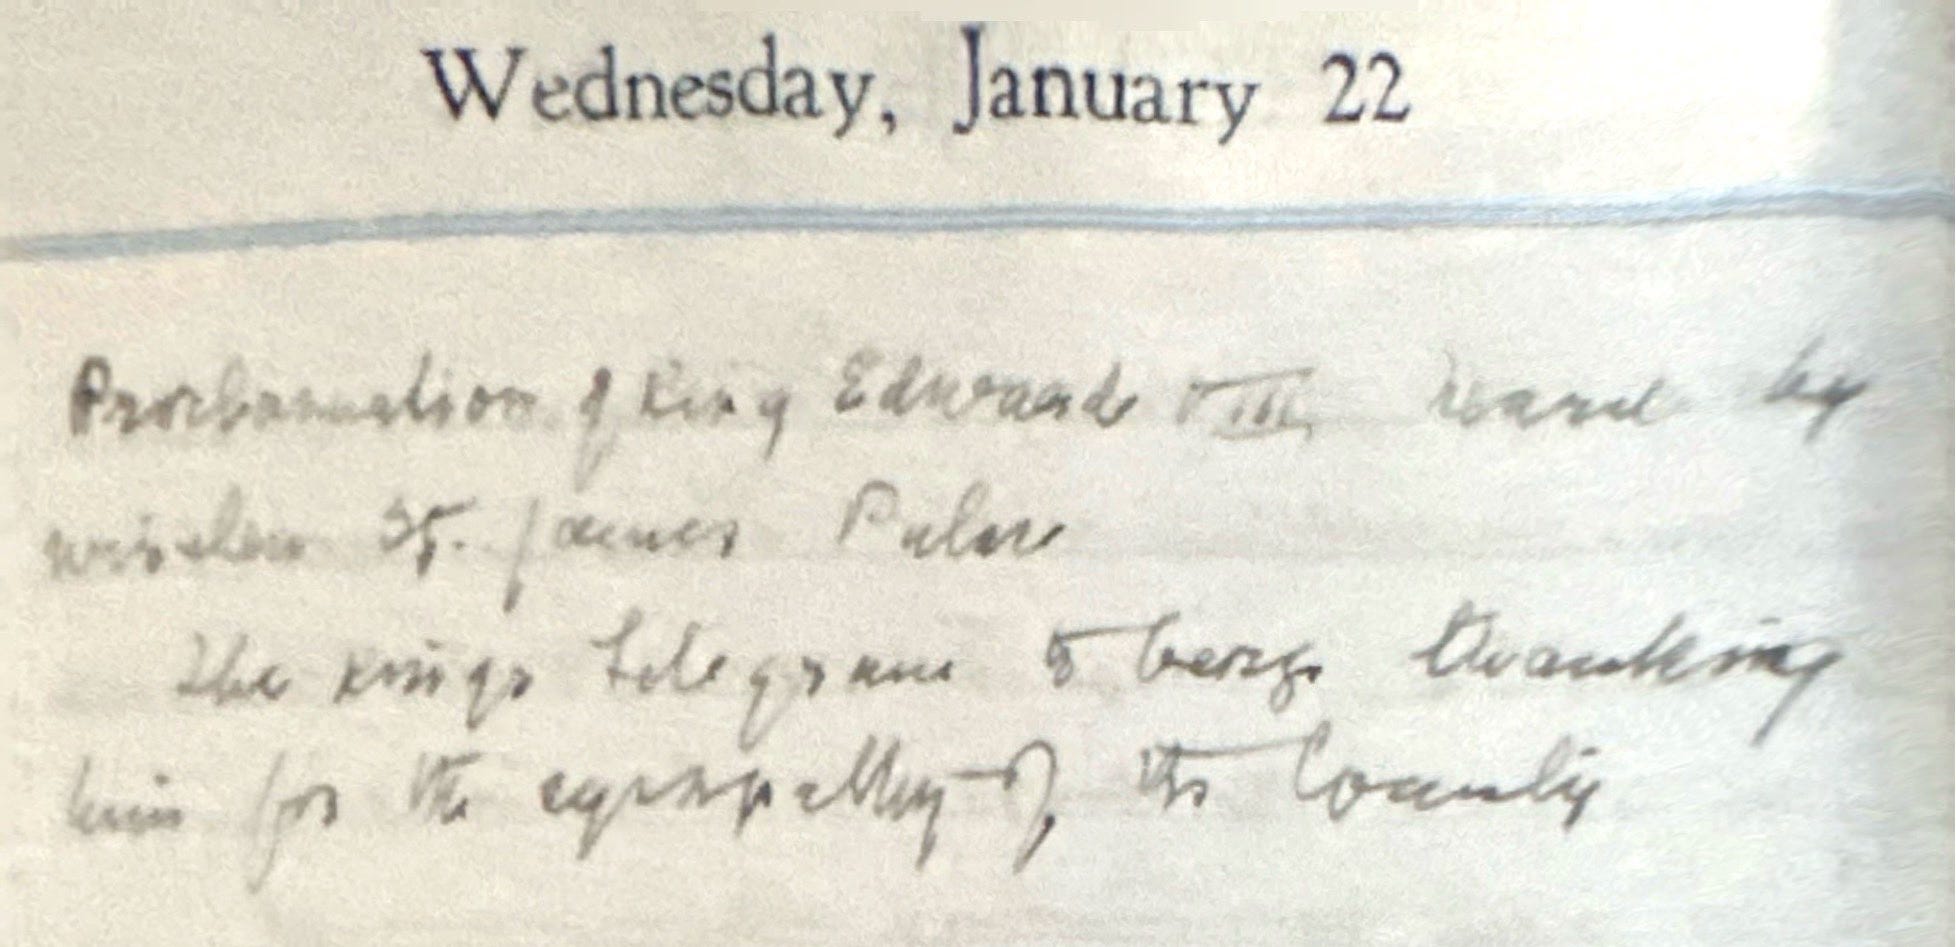 Wednesday, January 22
Proclamation of King Edward VIII heard by
wireless St. James Palace
The Kings telegram to George thanking
him for the sympathy of the County